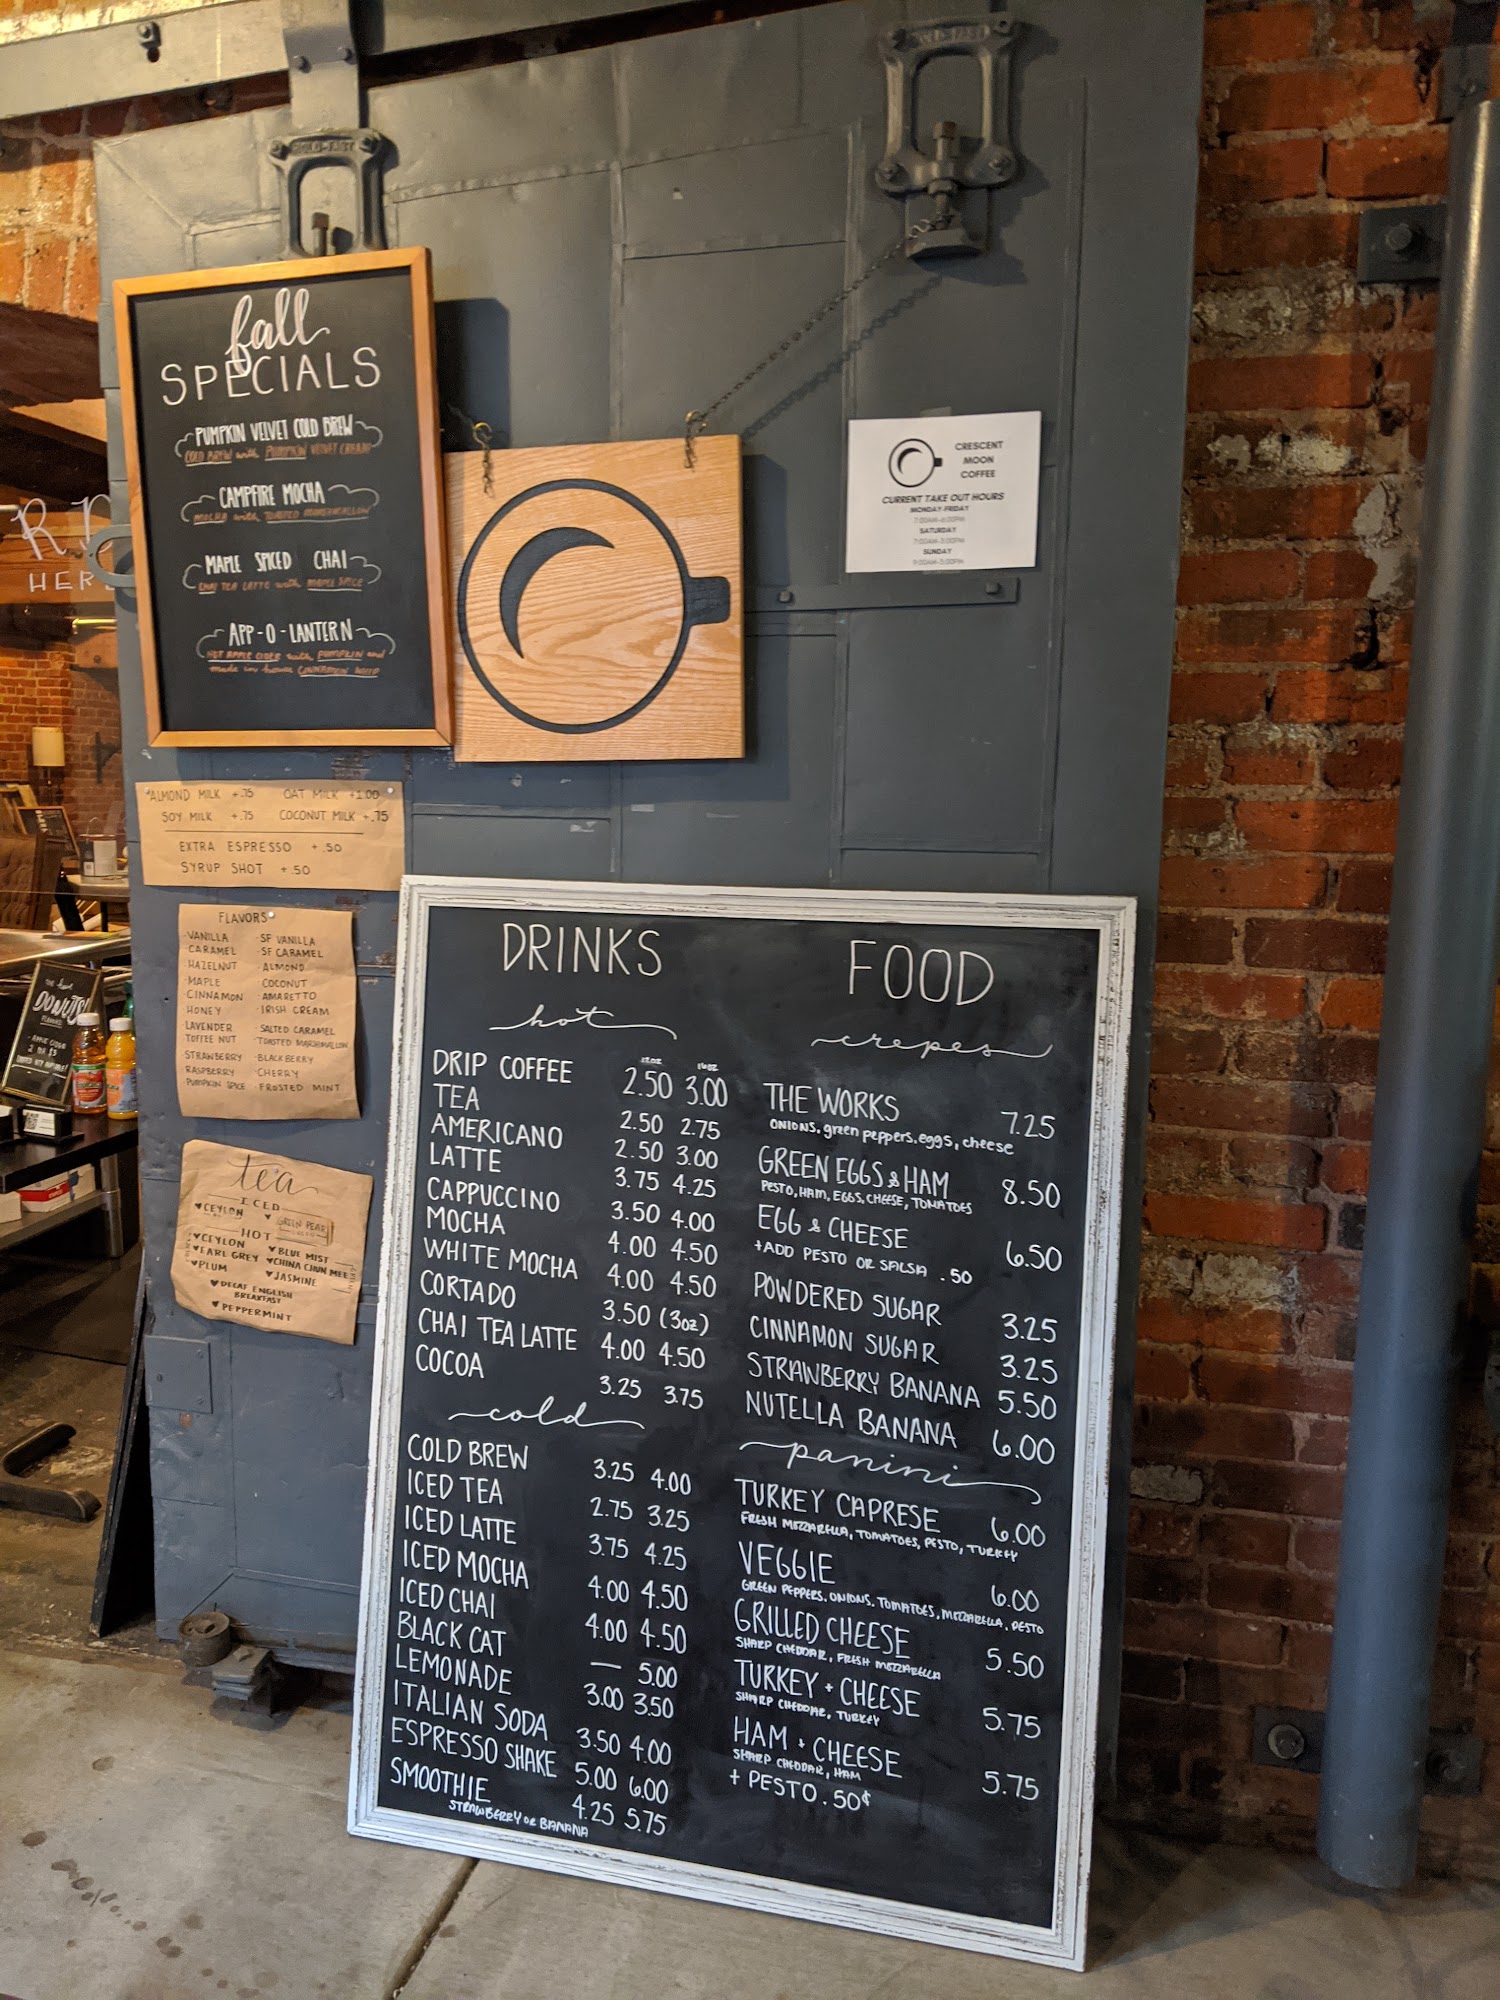 HOLD-FAST
fall
SPECIALS
PUMPKIN VELVET COLD BREW
COLD BREW with PUMPKIN VELVET CREAM
CAMPFIRE MOCHA
MOCHA with TOASTED MARSHMALLOW
MAPLE SPICED CHAI
CHAI TEA LATTE with MAPLE SPICE
APP-O-LANTERN
HOT APPLE CIDER with PUMPKIN and
made in house CINNAMON
CRESCENT
MOON
COFFEE
CURRENT TAKE OUT HOURS
MONDAY-FRIDAY
7:00AM-6:00PM
SATURDAY
7:00AM-3:00PM
SUNDAY
9:00AM-3:00PM
ALMOND MILK +.75 OAT MILK +1.00
SOY MILK +.75 COCONUT MILK +.75
EXTRA ESPRESSO +.50
SYRUP SHOT +.50
FLAVORS
VANILLA · SF VANILLA
CARAMEL · SF CARAMEL
HAZELNUT · ALMOND
MAPLE COCONUT
CINNAMON · AMARETTO
HONEY · IRISH CREAM
LAVENDER · SALTED CARAMEL
TOFFEE NUT · TOASTED MARSHMALLOW
STRAWBERRY · BLACKBERRY
RASPBERRY · CHERRY
PUMPKIN SPICE · FROSTED MINT
tea
ICED
♥CEYLON ♥ GREEN PEAR
HOT
♥CEYLON ♥BLUE MIST
♥EARL GREY ♥CHINA CHUN MEE
♥PLUM ♥JASMINE
♥DECAF ENGLISH
BREAKFAST
♥PEPPERMINT
DONUTS
DRINKS
hot
12oz 16oz
DRIP COFFEE 2.50 3.00
TEA 2.50 2.75
AMERICANO 2.50 3.00
LATTE 3.75 4.25
CAPPUCCINO 3.50 4.00
MOCHA 4.00 4.50
WHITE MOCHA 4.00 4.50
CORTADO 3.50 (3oz)
CHAI TEA LATTE 4.00 4.50
COCOA 3.25 3.75
cold
COLD BREW 3.25 4.00
ICED TEA 2.75 3.25
ICED LATTE 3.75 4.25
ICED MOCHA 4.00 4.50
ICED CHAI 4.00 4.50
BLACK CAT — 5.00
LEMONADE 3.00 3.50
ITALIAN SODA 3.50 4.00
ESPRESSO SHAKE 5.00 6.00
SMOOTHIE 4.25 5.75
STRAWBERRY OR BANANA
FOOD
crepes
THE WORKS 7.25
ONIONS, green peppers, eggs, cheese
GREEN EGGS & HAM 8.50
PESTO, HAM, EGGS, CHEESE, TOMATOES
EGG & CHEESE 6.50
+ADD PESTO OR SALSA .50
POWDERED SUGAR 3.25
CINNAMON SUGAR 3.25
STRAWBERRY BANANA 5.50
NUTELLA BANANA 6.00
panini
TURKEY CAPRESE 6.00
FRESH MOZZARELLA, TOMATOES, PESTO, TURKEY
VEGGIE 6.00
GREEN PEPPERS, ONIONS, TOMATOES, MOZZARELLA, PESTO
GRILLED CHEESE 5.50
SHARP CHEDDAR, FRESH MOZZARELLA
TURKEY + CHEESE 5.75
SHARP CHEDDAR, TURKEY
HAM + CHEESE 5.75
SHARP CHEDDAR, HAM
+ PESTO .50¢